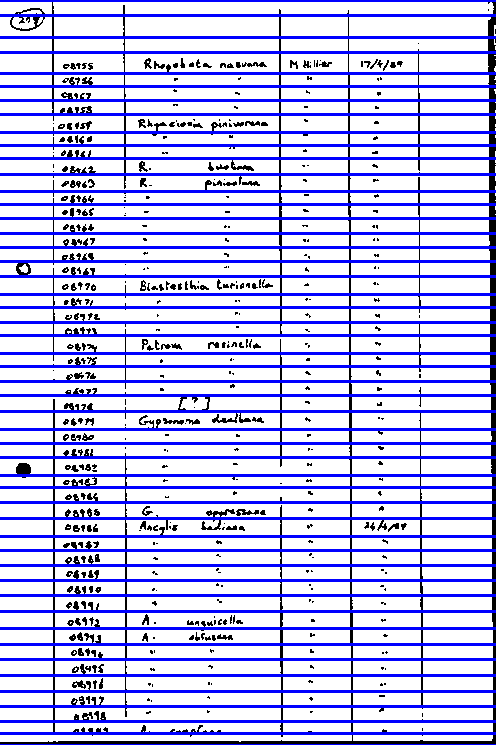 08955 Rhopobota naevana M Hillier 17/4/89
08956 " " " "
08957 " " " "
08958 " " " "
08959 Rhyacionia pinivorana " "
08960 " " " "
08961 " " " "
08962 R. buoliana " "
08963 R. pinicolana " "
08964 " " " "
08965 " " " "
08966 " " " "
08967 " " " "
08968 " " " "
08969 " " " "
08970 Blastesthia turionella " "
08971 " " " "
08972 " " " "
08973 " " " "
08974 Petrova resinella " "
08975 " " " "
08976 " " " "
08977 " " " "
08978 [?] " "
08979 Gypsonoma dealbana " "
08980 " " " "
08981 " " " "
08982 " " " "
08983 " " " "
08984 " " " "
08985 G. oppressana " "
08986 Ancylis badiana "
08987 " " " "
08988 " " " "
08989 " " " "
08990 " " " "
08991 " " " "
08992 A. unguicella " "
08993 A. obtusana " "
08994 " " " "
08995 " " " "
08996 " " " "
08997 " " " "
08998 " " " "
08999 A. comptana " "